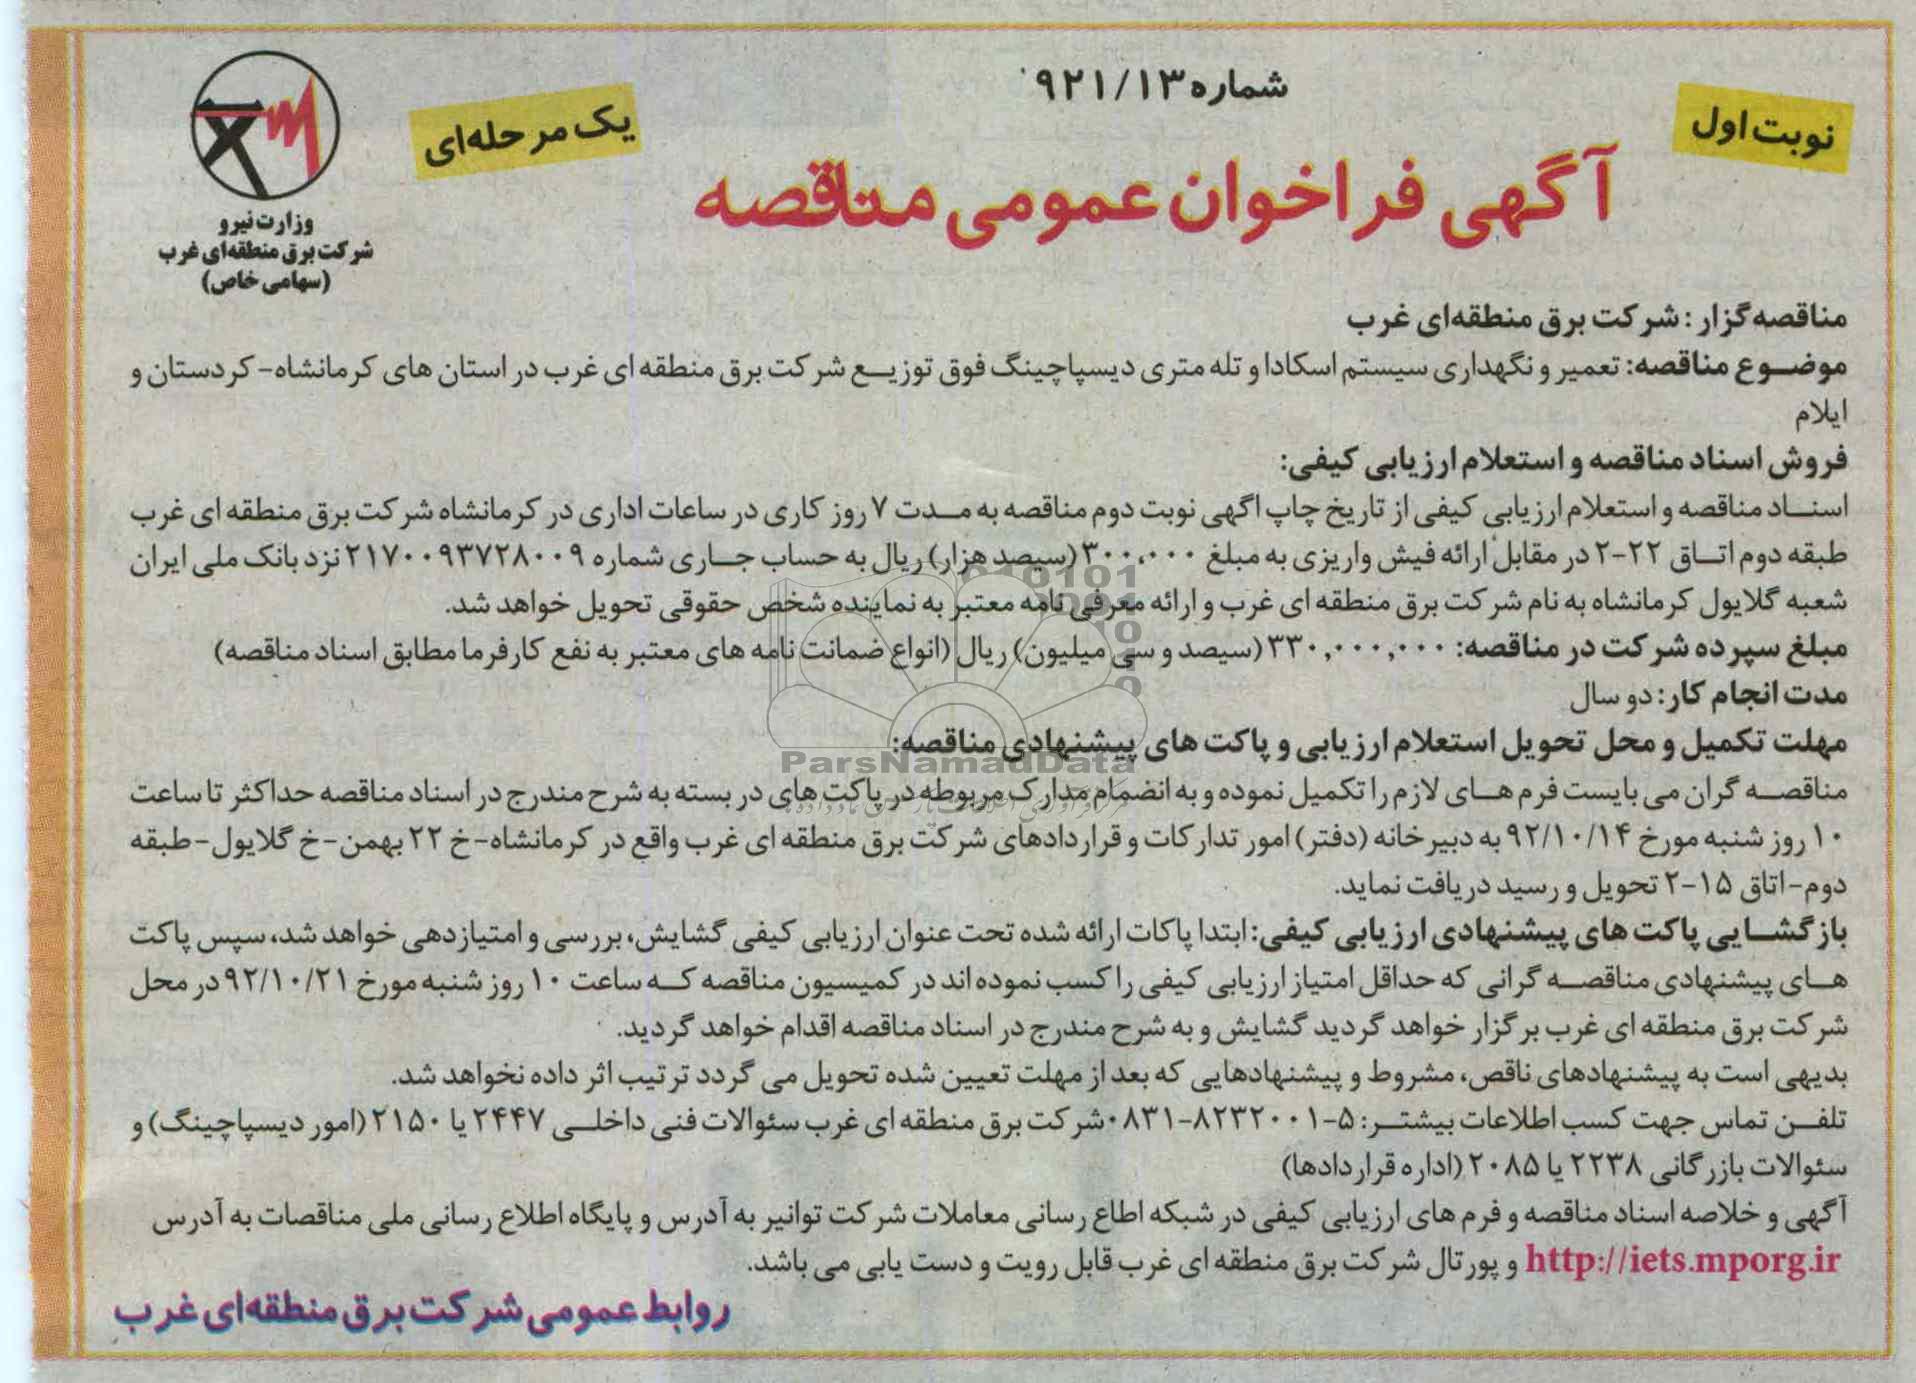 شماره ۹۲۱/۱۳
نوبت اول
یک مرحله‌ای
آگهی فراخوان عمومی مناقصه
وزارت نیرو
شرکت برق منطقه‌ای غرب
(سهامی خاص)
مناقصه‌گزار: شرکت برق منطقه‌ای غرب
موضوع مناقصه: تعمیر و نگهداری سیستم اسکادا و تله متری دیسپاچینگ فوق توزیع شرکت برق منطقه ای غرب در استان های کرمانشاه- کردستان و
ایلام
فروش اسناد مناقصه و استعلام ارزیابی کیفی:
اسناد مناقصه و استعلام ارزیابی کیفی از تاریخ چاپ اگهی نوبت دوم مناقصه به مدت ۷ روز کاری در ساعات اداری در کرمانشاه شرکت برق منطقه ای غرب
طبقه دوم اتاق ۲۲-۲ در مقابل ارائه فیش واریزی به مبلغ ۳۰۰,۰۰۰ (سیصد هزار) ریال به حساب جاری شماره ۲۱۷۰۰۹۳۷۲۸۰۰۹ نزد بانک ملی ایران
شعبه گلایول کرمانشاه به نام شرکت برق منطقه ای غرب و ارائه معرفی نامه معتبر به نماینده شخص حقوقی تحویل خواهد شد.
مبلغ سپرده شرکت در مناقصه: ۳۳۰,۰۰۰,۰۰۰ (سیصد و سی میلیون) ریال (انواع ضمانت نامه های معتبر به نفع کارفرما مطابق اسناد مناقصه)
مدت انجام کار: دو سال
مهلت تکمیل و محل تحویل استعلام ارزیابی و پاکت های پیشنهادی مناقصه:
ParsNamadData
مناقصه گران می بایست فرم های لازم را تکمیل نموده و به انضمام مدارک مربوطه در پاکت های در بسته به شرح مندرج در اسناد مناقصه حداکثر تا ساعت
۱۰ روز شنبه مورخ ۹۲/۱۰/۱۴ به دبیرخانه (دفتر) امور تدارکات و قراردادهای شرکت برق منطقه ای غرب واقع در کرمانشاه-خ ۲۲ بهمن-خ گلایول-طبقه
دوم-اتاق ۱۵-۲ تحویل و رسید دریافت نماید.
بازگشایی پاکت های پیشنهادی ارزیابی کیفی: ابتدا پاکات ارائه شده تحت عنوان ارزیابی کیفی گشایش، بررسی و امتیازدهی خواهد شد، سپس پاکت
های پیشنهادی مناقصه گرانی که حداقل امتیاز ارزیابی کیفی را کسب نموده اند در کمیسیون مناقصه که ساعت ۱۰ روز شنبه مورخ ۹۲/۱۰/۲۱ در محل
شرکت برق منطقه ای غرب برگزار خواهد گردید گشایش و به شرح مندرج در اسناد مناقصه اقدام خواهد گردید.
بدیهی است به پیشنهادهای ناقص، مشروط و پیشنهادهایی که بعد از مهلت تعیین شده تحویل می گردد ترتیب اثر داده نخواهد شد.
تلفن تماس جهت کسب اطلاعات بیشتر: ۵-۸۲۳۲۰۰۱-۰۸۳۱ شرکت برق منطقه ای غرب سئوالات فنی داخلی ۲۴۴۷ یا ۲۱۵۰ (امور دیسپاچینگ) و
سئوالات بازرگانی ۲۲۳۸ یا ۲۰۸۵ (اداره قراردادها)
آگهی و خلاصه اسناد مناقصه و فرم های ارزیابی کیفی در شبکه اطاع رسانی معاملات شرکت توانیر به آدرس و پایگاه اطلاع رسانی ملی مناقصات به آدرس
http://iets.mporg.ir و پورتال شرکت برق منطقه ای غرب قابل رویت و دست یابی می باشد.
روابط عمومی شرکت برق منطقه‌ای غرب